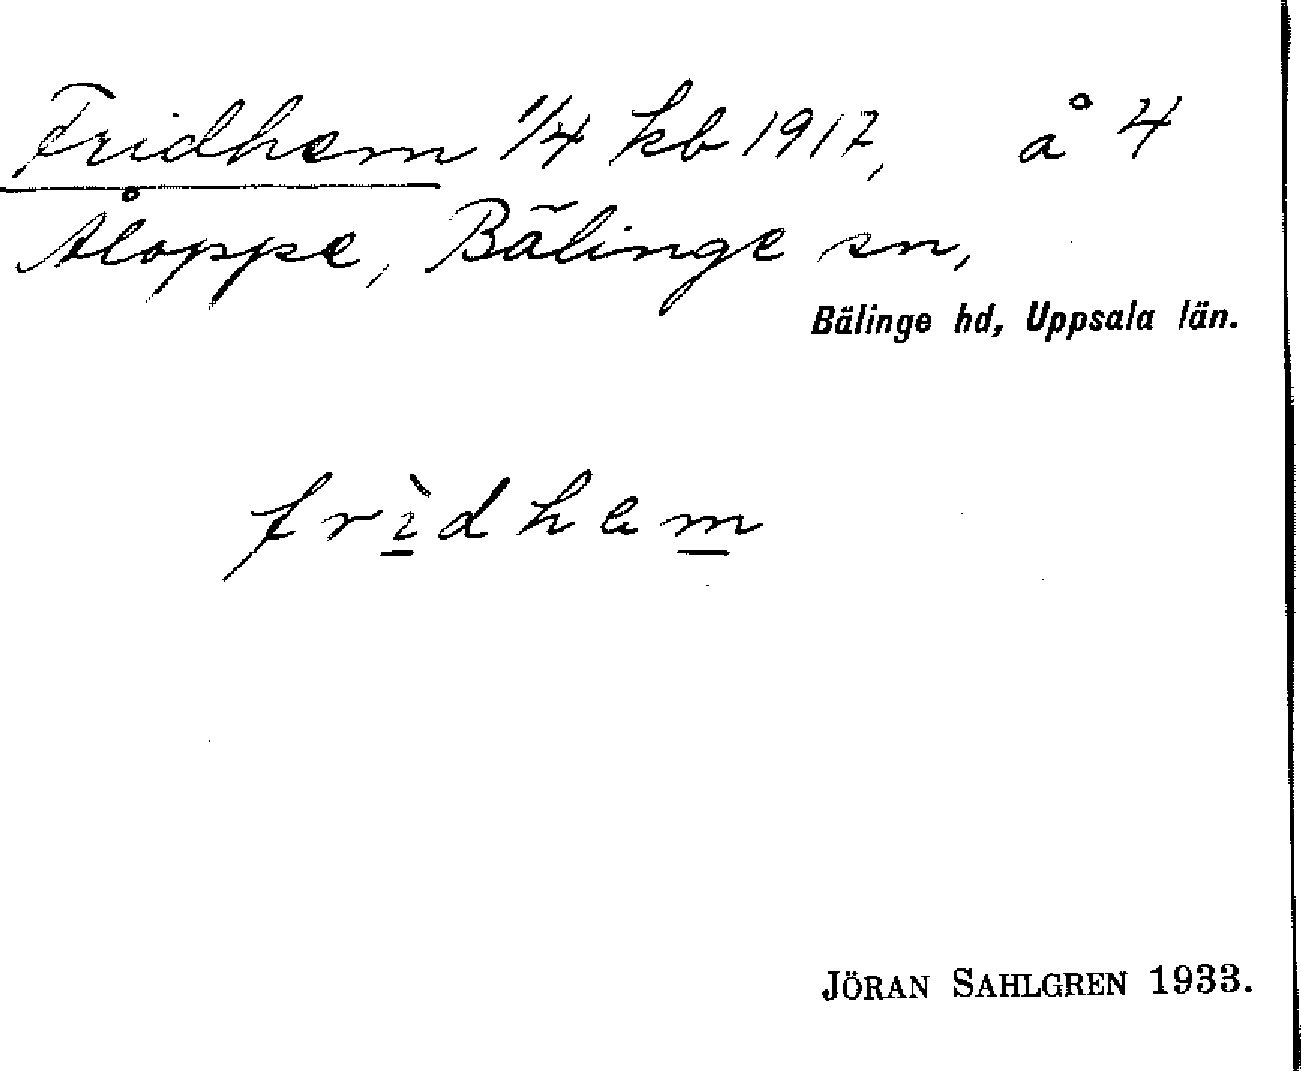 Fridhem 1/4 kb 1917, å 4
Åloppe, Bälinge sn,
Bälinge hd, Uppsala län.
frìdhem
JÖRAN SAHLGREN 1933.